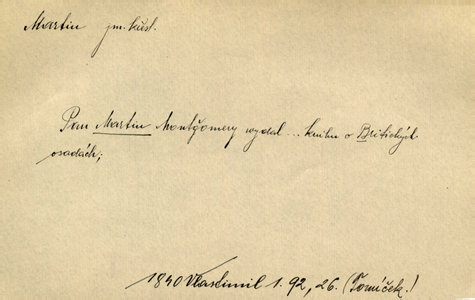 Martin jm. křest.
Pan Martin Montgomery wydal .. knihu o Britických
osadách;
1840 Vlastimil 1. 92, 26. (Tomíček!)